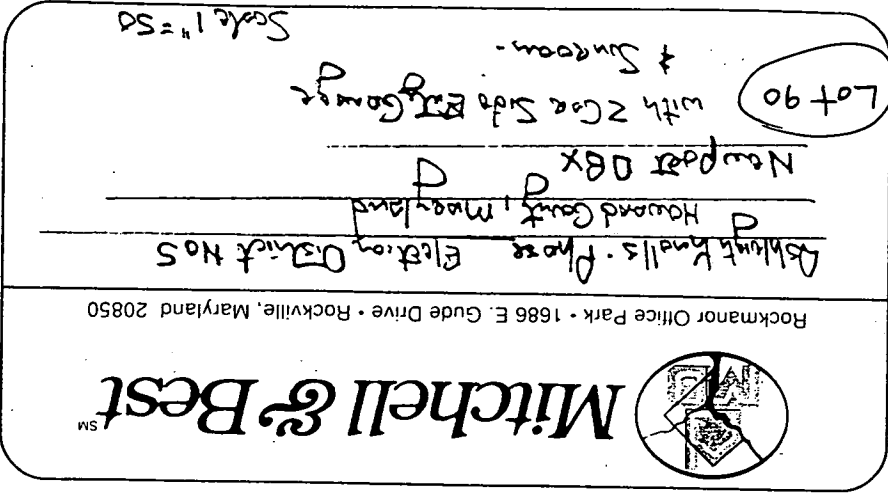 Mitchell & Best SM
Rockmanor Office Park • 1686 E. Gude Drive • Rockville, Maryland 20850
Knolls - Phase Election District No 5
Howard County, Maryland
Newport DBX
Lot 90 with 2 Car Side Entry Garage
& Sunroom -
Scale 1" = 50